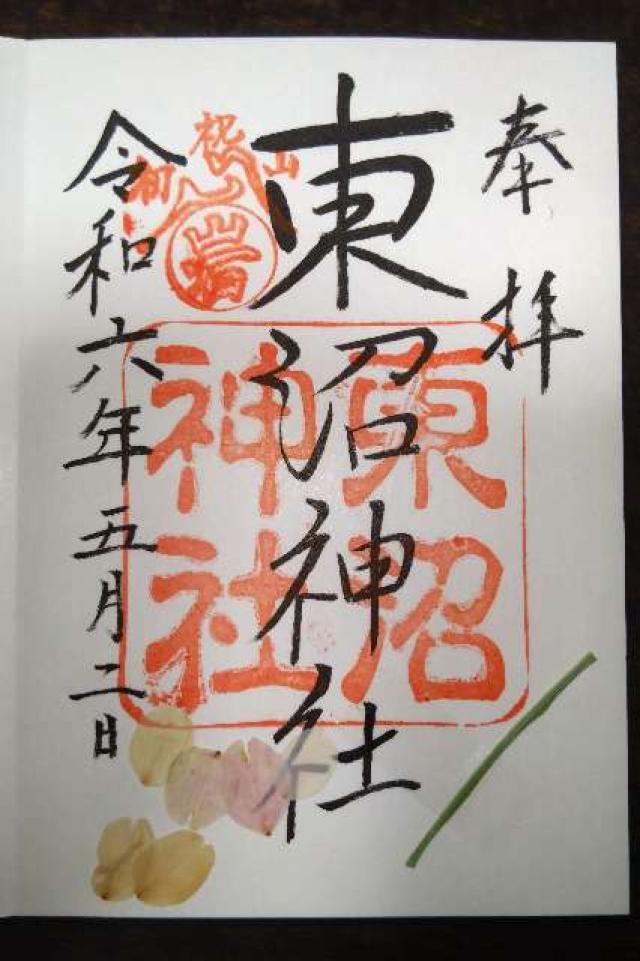 奉拝
東沼神社
令和六年五月二日
東沼
神社